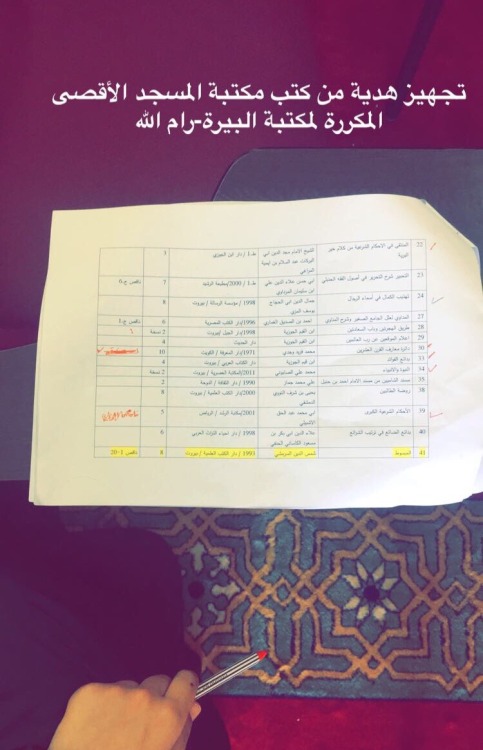 تجهيز هدية من كتب مكتبة المسجد الأقصى
المكررة لمكتبة البيرة-رام الله
22 المنتقى في الاحكام الشرعية من كلام خير البرية الشيخ الامام مجد الدين ابي البركات عبد السلام بن تيمية الحراني ط.1 / دار ابن الجوزي 1
23 التحبير شرح التحرير في اصول الفقه الحنبلي ابي حسن علاء الدين علي ابن سليمان المرداوي ط.1 / 2000/مطبعة الرشد 7 ناقص ج.6
24 تهذيب الكمال في أسماء الرجال جمال الدين ابي الحجاج يوسف المزي 1998 / مؤسسة الرسالة / بيروت 8
27 المداوي لعلل الجامع الصغير وشرح المناوي احمد بن الصديق الغماري 1996/دار الكتب المصرية 6 ناقص ج.1
28 طريق الهجرتين وباب السعادتين ابن القيم الجوزية 1998/دار الجيل /بيروت 2 نسخة
29 اعلام الموقعين عن رب العالمين ابن القيم الجوزية دار الحديث 4
30 دائرة معارف القرن العشرين محمد فريد وجدي 1971/دار المعرفة / الكويت 10
33 بدائع الفوائد ابن القيم الجوزية دار الكتاب العربي / بيروت 4
34 النبوة والانبياء محمد علي الصابوني 2011/المكتبة العصرية / بيروت 2 نسخة
35 مسند الشاميين من مسند الامام احمد بن حنبل علي محمد جماز 1990 / دار الثقافة / الدوحة 2
38 روضة الطالبين يحيى بن شرف النووي الدمشقي 2000/دار الكتب العلمية / بيروت 8
39 الأحكام الشرعية الكبرى ابي محمد عبد الحق الاشبيلي 2001/مكتبة الرشد / الرياض 5
40 بدائع الصنائع في ترتيب الشرائع علاء الدين ابي بكر بن مسعود الكاساني الحنفي 1998 / دار احياء التراث العربي 6
41 المبسوط شمس الدين السرخسي 1993 / دار الكتب العلمية / بيروت 8 ناقص 1-20